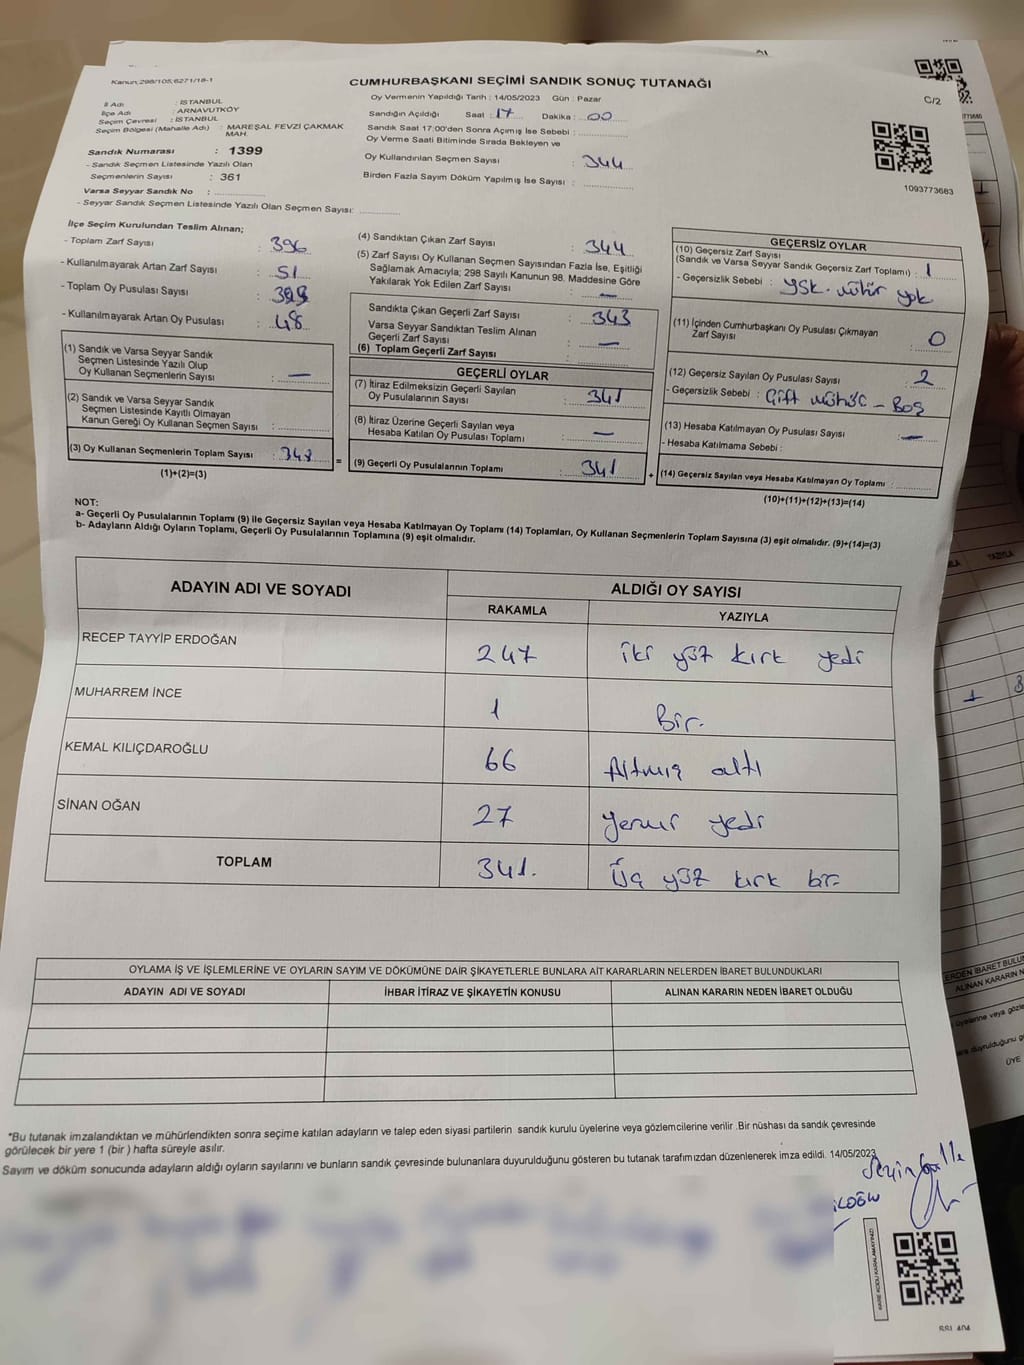 Kanun:298/105,6271/18-1
CUMHURBAŞKANI SEÇİMİ SANDIK SONUÇ TUTANAĞI
C/2
İl Adı : İSTANBUL
İlçe Adı : ARNAVUTKÖY
Seçim Çevresi : İSTANBUL
Seçim Bölgesi (Mahalle Adı) : MAREŞAL FEVZİ ÇAKMAK MAH.
Sandık Numarası : 1399
- Sandık Seçmen Listesinde Yazılı Olan
Seçmenlerin Sayısı : 361
Varsa Seyyar Sandık No :
- Seyyar Sandık Seçmen Listesinde Yazılı Olan Seçmen Sayısı:
Oy Vermenin Yapıldığı Tarih : 14/05/2023 Gün : Pazar
Sandığın Açıldığı Saat : 17 Dakika : 00
Sandık Saat 17:00'den Sonra Açımış İse Sebebi :
Oy Verme Saati Bitiminde Sırada Bekleyen ve
Oy Kullandırılan Seçmen Sayısı : 344
Birden Fazla Sayım Döküm Yapılmış İse Sayısı :
1093773683
İlçe Seçim Kurulundan Teslim Alınan;
- Toplam Zarf Sayısı : 396
- Kullanılmayarak Artan Zarf Sayısı : 51
- Toplam Oy Pusulası Sayısı :
- Kullanılmayarak Artan Oy Pusulası : 48
(1) Sandık ve Varsa Seyyar Sandık
Seçmen Listesinde Yazılı Olup
Oy Kullanan Seçmenlerin Sayısı : —
(2) Sandık ve Varsa Seyyar Sandık
Seçmen Listesinde Kayıtlı Olmayan
Kanun Gereği Oy Kullanan Seçmen Sayısı :
(3) Oy Kullanan Seçmenlerin Toplam Sayısı :
(1)+(2)=(3)
=
(4) Sandıktan Çıkan Zarf Sayısı : 344
(5) Zarf Sayısı Oy Kullanan Seçmen Sayısından Fazla İse, Eşitliği
Sağlamak Amacıyla; 298 Sayılı Kanunun 98. Maddesine Göre
Yakılarak Yok Edilen Zarf Sayısı : —
Sandıkta Çıkan Geçerli Zarf Sayısı : 343
Varsa Seyyar Sandıktan Teslim Alınan
Geçerli Zarf Sayısı : —
(6) Toplam Geçerli Zarf Sayısı :
GEÇERLİ OYLAR
(7) İtiraz Edilmeksizin Geçerli Sayılan
Oy Pusulalarının Sayısı : 341
(8) İtiraz Üzerine Geçerli Sayılan veya
Hesaba Katılan Oy Pusulası Toplamı : —
(9) Geçerli Oy Pusulalarının Toplamı : 341
+
GEÇERSİZ OYLAR
(10) Geçersiz Zarf Sayısı
(Sandık ve Varsa Seyyar Sandık Geçersiz Zarf Toplamı) : 1
- Geçersizlik Sebebi : YSK. mühür yok
(11) İçinden Cumhurbaşkanı Oy Pusulası Çıkmayan
Zarf Sayısı : 0
(12) Geçersiz Sayılan Oy Pusulası Sayısı : 2
- Geçersizlik Sebebi : Çift mühür – Boş
(13) Hesaba Katılmayan Oy Pusulası Sayısı : —
- Hesaba Katılmama Sebebi :
(14) Geçersiz Sayılan veya Hesaba Katılmayan Oy Toplamı :
(10)+(11)+(12)+(13)=(14)
NOT:
a- Geçerli Oy Pusulalarının Toplamı (9) ile Geçersiz Sayılan veya Hesaba Katılmayan Oy Toplamı (14) Toplamları, Oy Kullanan Seçmenlerin Toplam Sayısına (3) eşit olmalıdır. (9)+(14)=(3)
b- Adayların Aldığı Oyların Toplamı, Geçerli Oy Pusulalarının Toplamına (9) eşit olmalıdır.
ADAYIN ADI VE SOYADI ALDIĞI OY SAYISI
RAKAMLA YAZIYLA
RECEP TAYYİP ERDOĞAN 247 iki yüz kırk yedi
MUHARREM İNCE 1 Bir.
KEMAL KILIÇDAROĞLU 66 Altmış altı
SİNAN OĞAN 27 yirmi yedi
TOPLAM 341. Üç yüz kırk bir.
OYLAMA İŞ VE İŞLEMLERİNE VE OYLARIN SAYIM VE DÖKÜMÜNE DAİR ŞİKAYETLERLE BUNLARA AİT KARARLARIN NELERDEN İBARET BULUNDUKLARI
ADAYIN ADI VE SOYADI İHBAR İTİRAZ VE ŞİKAYETİN KONUSU ALINAN KARARIN NEDEN İBARET OLDUĞU
*Bu tutanak imzalandıktan ve mühürlendikten sonra seçime katılan adayların ve talep eden siyasi partilerin sandık kurulu üyelerine veya gözlemcilerine verilir .Bir nüshası da sandık çevresinde
görülecek bir yere 1 (bir ) hafta süreyle asılır.
Sayım ve döküm sonucunda adayların aldığı oyların sayılarını ve bunların sandık çevresinde bulunanlara duyurulduğunu gösteren bu tutanak tarafımızdan düzenlenerek imza edildi. 14/05/2023
KARE KODU KARALAMAYINIZ!
YAZIYLA